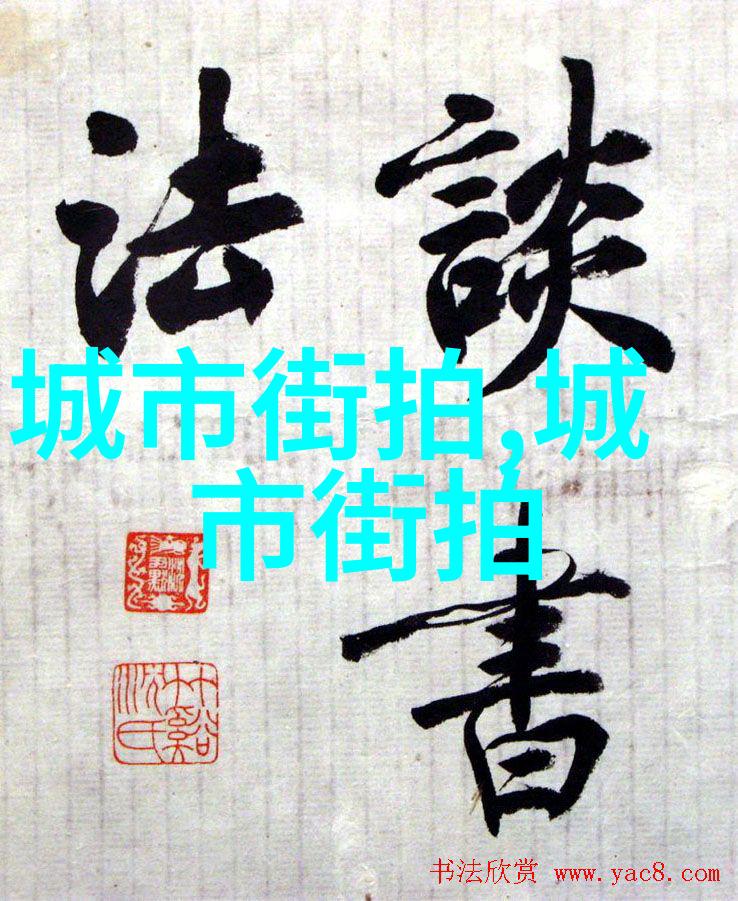 談書
法
城市街拍,城
市街拍
竹谿
沈氏
书法欣赏 www.yac8.com